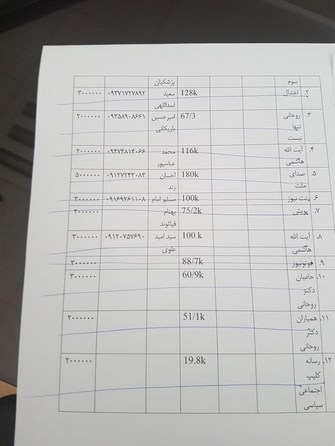 سوم
پزشکیان
۲. اعتدال 128k سعید ۳۰۰۰۰۰۰
اسداللهی
۳. روحانی 67/3 امیرحسین ۲۰۰۰۰۰۰
تنها
نیست
۴. آیت الله 116k محمد ۲۰۰۰۰۰۰
هاشمی عباسپور
۵. صدای 180k احسان ۵۰۰۰۰۰۰
ملت زند
۶. بنت نیوز 100k مسلم امام ۳۰۰۰۰۰۰
۷. پویش 75/2k بهنام ۳۰۰۰۰۰۰
۸. آیت الله 100 k سید امید ۳۰۰۰۰۰۰
هاشمی علوی
۹. فوتونیوز 88/7k ۳۰۰۰۰۰۰
۱۰. حامیان 60/9k ۳۰۰۰۰۰۰
دکتر
روحانی
۱۱. همیاران 51/1k ۲۰۰۰۰۰۰
دکتر
روحانی
۱۲. رسانه 19.8k ۲۰۰۰۰۰۰
کلیپ
اجتماعی
سیاسی